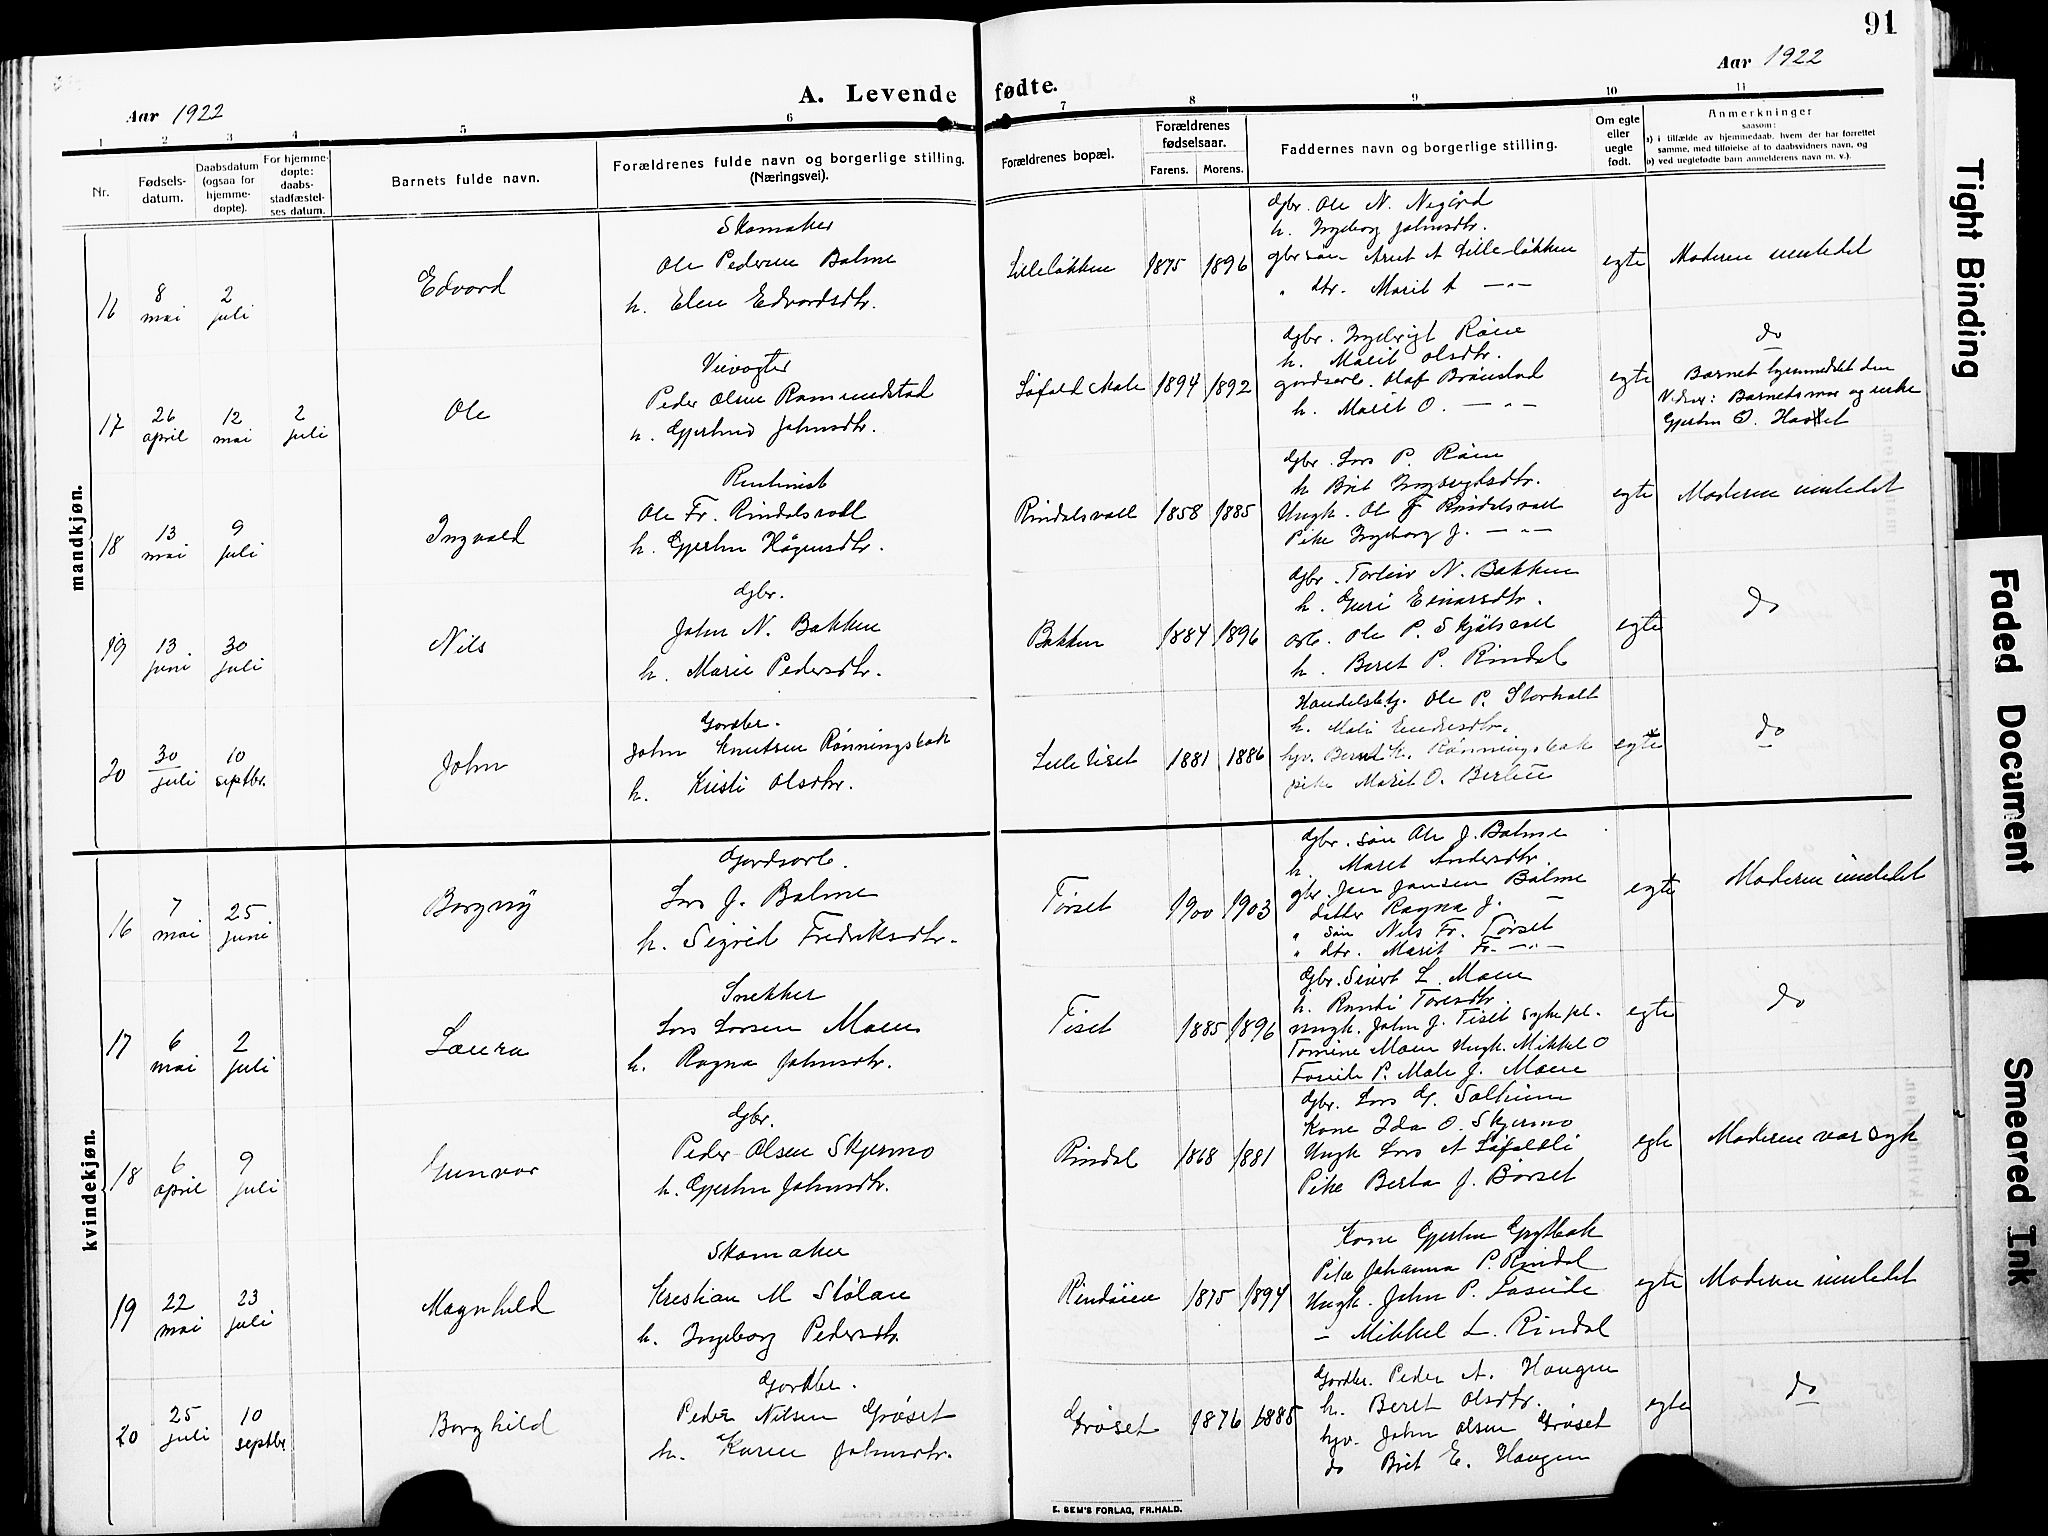 91
Aar 1922
A. Levende fødte.
Aar 1922
1 2 3 4 5 6 7 8 9 10 11
Nr.
Fødsels-
datum.
Daabsdatum
(ogsaa for
hjemme-
døpte).
For hjemme-
døpte:
daabs-
stadfæstel-
ses datum.
Barnets fulde navn.
Forældrenes fulde navn og borgerlige stilling.
(Næringsvei).
Forældrenes bopæl.
Forældrenes
fødselsaar.
Farens. Morens.
Faddernes navn og borgerlige stilling.
Om egte
eller
uegte
født.
Anmerkninger
saasom:
a) i tilfælde av hjemmedaab, hvem der har forrettet
samme, med tilføielse af to daabsvidners navn, og
b) ved uegtefødte barn anmelderens navn m. v.).
mandkjøn.
16
8
mai
2
juli
Edvard
Skomaker
Ole Pedersen Bolme
h. Elen Edvardsdtr.
Lilleløkken
1875 1896
Gbr. Ole N. Negård
h. Ingeborg Johnsdtr.
gbr søn Arnt A Lille-løkken
" dtr. Marit A —"—
egte
Moderen innledet
17
26
april
12
mai
2
juli
Ole
Veivogter
Peder Olsen Rommundstad
h. Gjertrud Johnsdtr.
1894 1892
Gbr. Ingebrigt Røen
h. Marit Olsdtr.
gardsarb. Olaf Brønstad
h. Marit O. —"—
egte
do
Barnet hjemmedøbt den
Gjertru O.
18
13
mai
9
juli
Ingvald
Rentenist
Ole Fr. Rindalsvoll
h. Gjertru Hågensdtr.
Rindalsvoll
1858 1885
Gbr. Lars P. Røen
h Brit Ingebrigtsdtr.
Ungk. Ol F Rindalsvoll
Pike Ingeborg J. —"—
egte
Moderen innledet
19
13
juni
30
juli
Nils
Gbr.
John N. Bakken
h. Marie Pedersdtr.
Bakken
1884 1896
Gbr. Torleiv N. Bakken
h. Guri Einarsdtr.
arb. Ole P. Skjølsvoll
h. Beret P. Rindal
egte
do
20
30
juli
10
septbr.
John
Gardbr.
John Knutsen Rønningsbak
h. Kristi Olsdtr.
Lille Tiset
1881 1886
Handelsbtj. Ole P. Storholt
h. Mali Endresdtr.
hjv. Bernt K. Rønningsbak
pike Marit O.
egte
do
kvindekjøn.
16
7
mai
25
juni
Borgny
Gardsarb.
Lars J. Bolme
h. Sigrid Fredriksdtr.
Tørset
1900 1903
Gbr. søn Ole J. Bolme
h. Maret Andersdtr.
gbr. Jon Jonsen Bolme
datter Ragna J. —
" søn Nils Fr. Tørset
" dtr. Marit Fr. —"—
egte
Moderen innledet
17
6
mai
2
juli
Laura
Snekker
Lars Larsen Moen
h. Ragna Johnsdtr.
Tiset
1885 1896
Gbr. Sivert L. Moen
h. Randi Toresdtr.
ungk. John J. Tiset sykepl.
Tomine Moen Ungk. Mikkel O
P. Mali J. Moen
egte
do
18
6
april
9
juli
Gunvor
Gbr.
Peder Olsen Skjermo
h. Gjertru Johnsdtr.
Rindal
1868 1881
Gbr. Lars G. Solheim
Kone Ida O. Skjermo
Ungk Lars A Løfaldli
Pike Berta J. Børset
egte
Moderen var syk
19
22
mai
23
juli
Magnhild
Skomaker
Kristian M Stølan
h. Ingeborg Pedersdtr.
Rindøien
1875 1894
Kone Gjertru Grytbak
Pike Johanna P. Rindal
Ungk. John P. Foseide
— Mikkel L. Rindal
egte
Moderen innledet
20
25
juli
10
septbr
Borghild
Gardbr.
Peder Nilsen Grøset
h. Karen Johnsdtr.
Grøset
1876 1885
Gardbr. Peder A. Haugen
h. Beret Olsdtr.
hjv. John Olsen Grøset
do Brit E. Haugen
egte
do
E. SEM'S FORLAG, FR.HALD.
Tight Binding
Faded Document
Smeared Ink